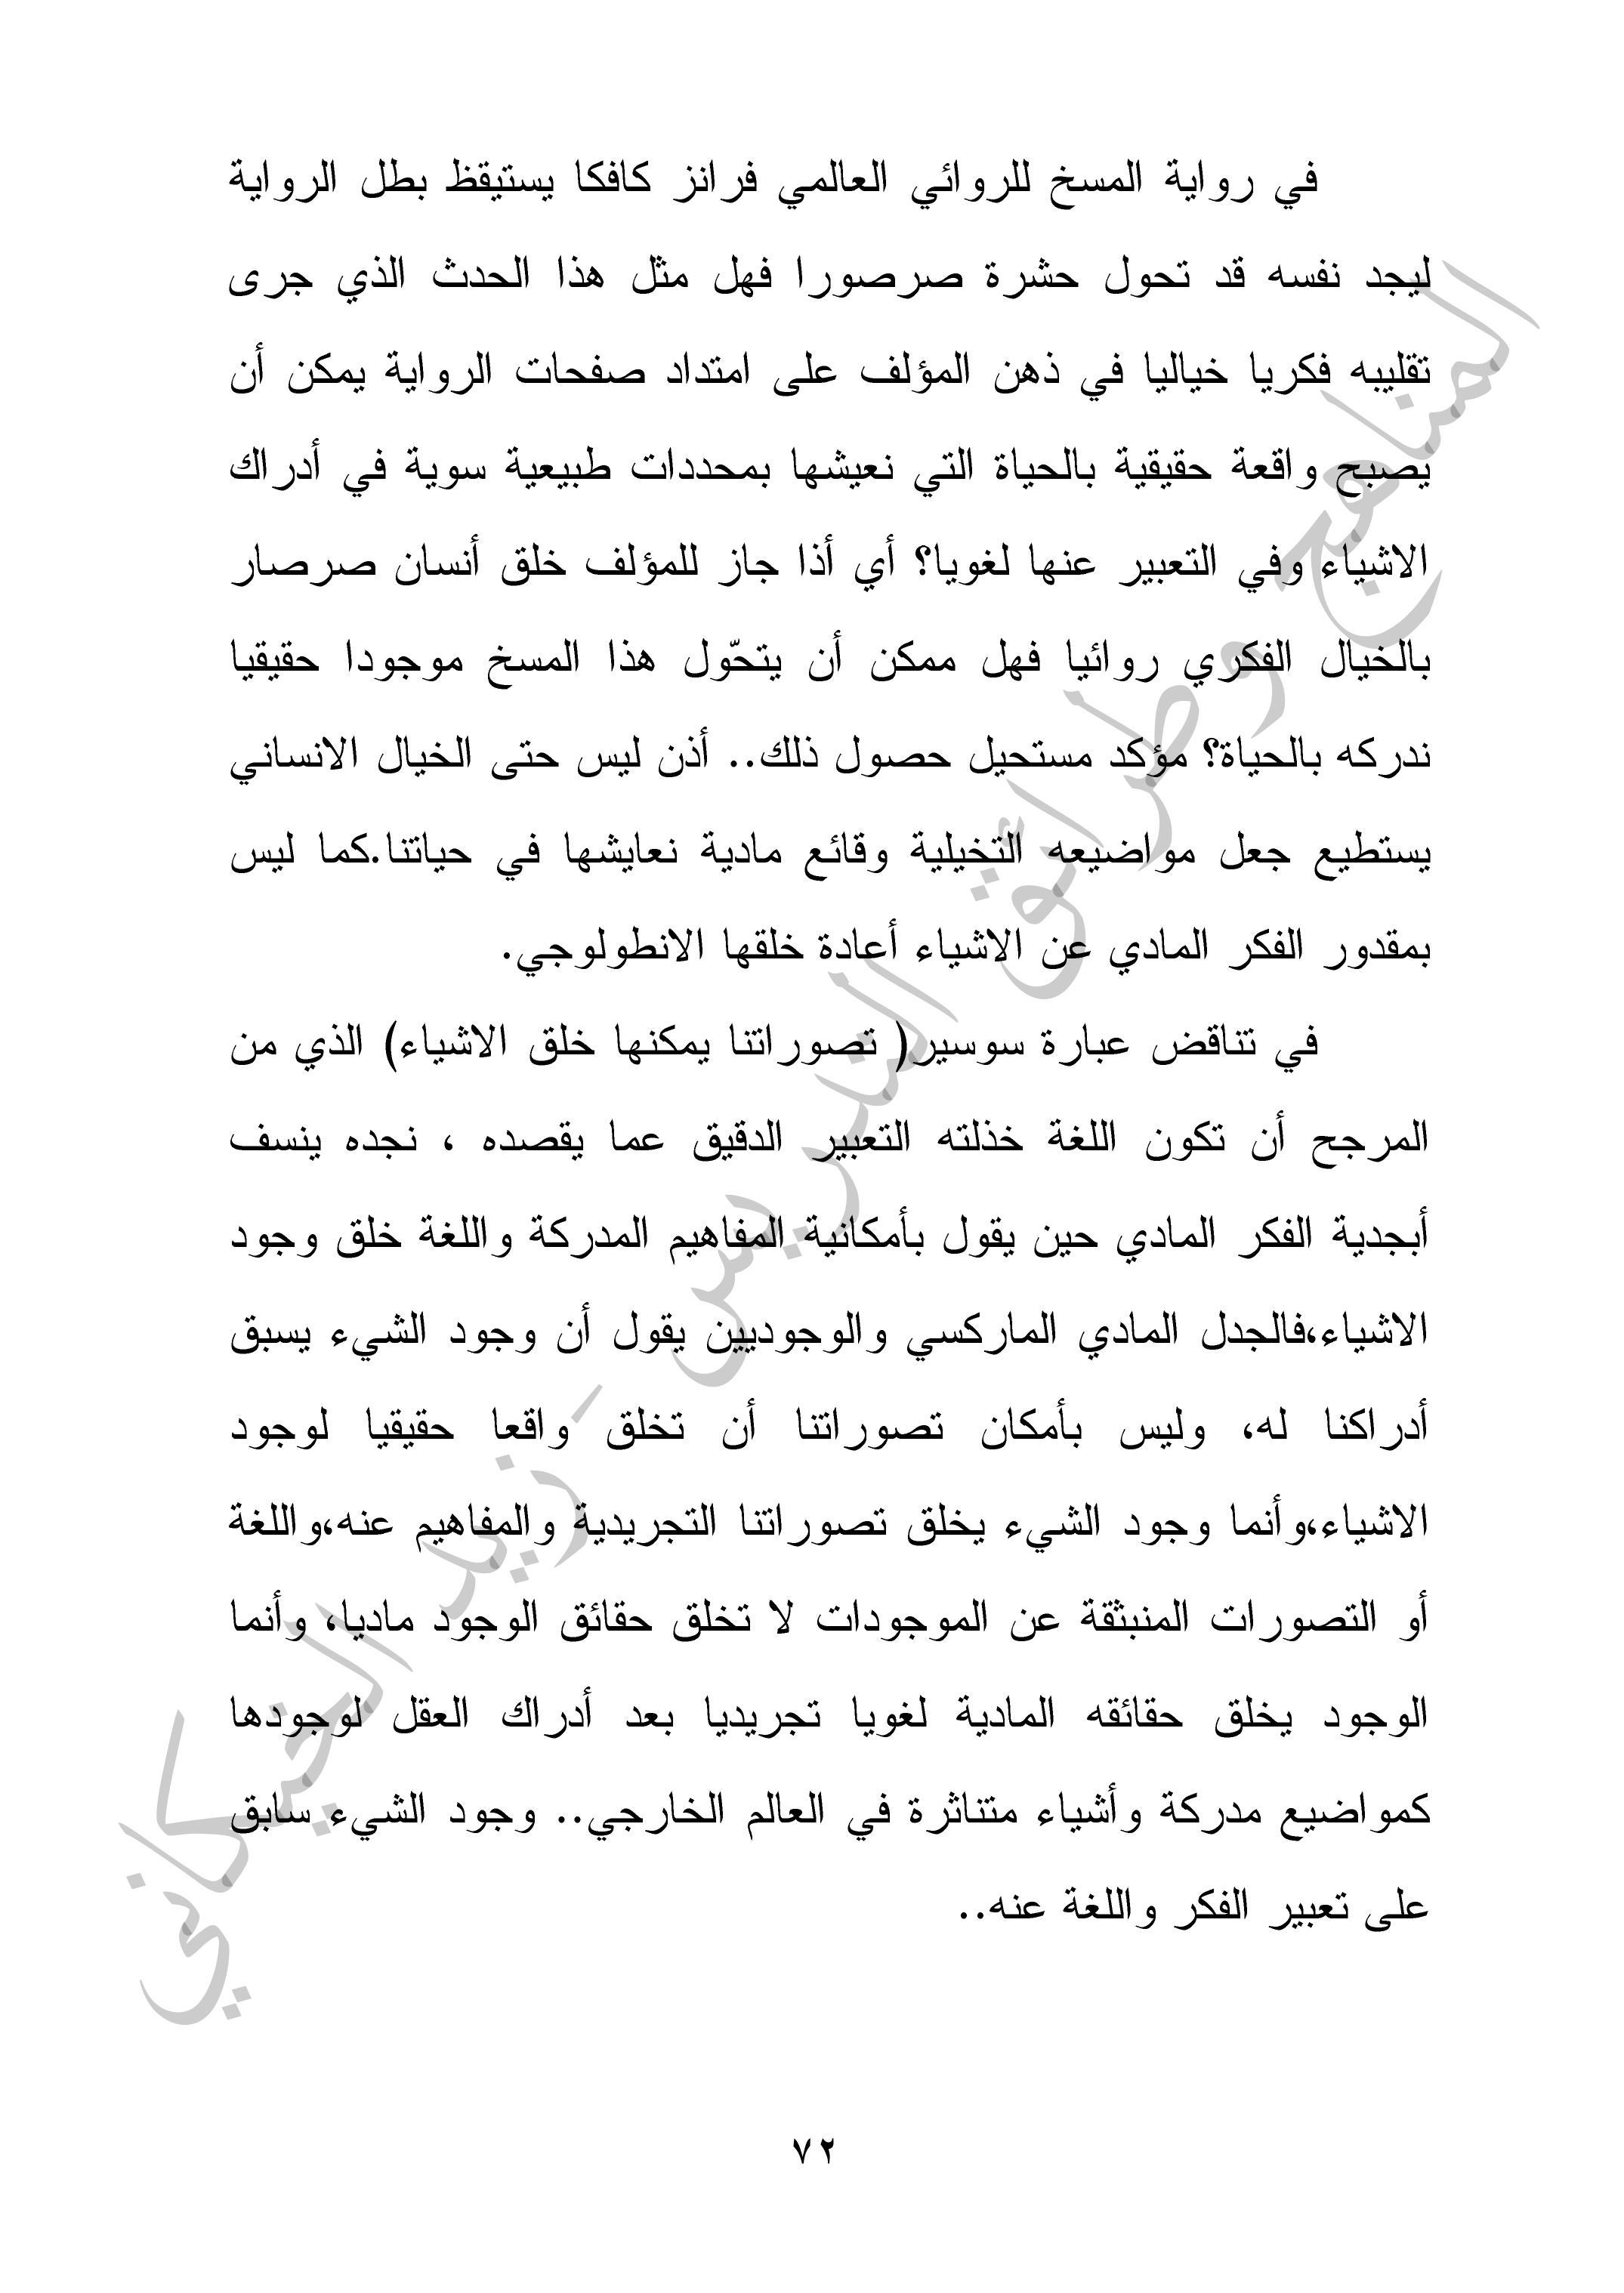 في رواية المسخ للروائي العالمي فرانز كافكا يستيقظ بطل الرواية
ليجد نفسه قد تحول حشرة صرصورا فهل مثل هذا الحدث الذي جرى
تقليبه فكريا خياليا في ذهن المؤلف على امتداد صفحات الرواية يمكن أن
يصبح واقعة حقيقية بالحياة التي نعيشها بمحددات طبيعية سوية في أدراك
الاشياء وفي التعبير عنها لغويا؟ أي أذا جاز للمؤلف خلق أنسان صرصار
بالخيال الفكري روائيا فهل ممكن أن يتحّول هذا المسخ موجودا حقيقيا
ندركه بالحياة؟ مؤكد مستحيل حصول ذلك.. أذن ليس حتى الخيال الانساني
يستطيع جعل مواضيعه التخيلية وقائع مادية نعايشها في حياتنا.كما ليس
بمقدور الفكر المادي عن الاشياء أعادة خلقها الانطولوجي.
في تناقض عبارة سوسير( تصوراتنا يمكنها خلق الاشياء) الذي من
المرجح أن تكون اللغة خذلته التعبير الدقيق عما يقصده ، نجده ينسف
أبجدية الفكر المادي حين يقول بأمكانية المفاهيم المدركة واللغة خلق وجود
الاشياء،فالجدل المادي الماركسي والوجوديين يقول أن وجود الشيء يسبق
أدراكنا له، وليس بأمكان تصوراتنا أن تخلق واقعا حقيقيا لوجود
الاشياء،وأنما وجود الشيء يخلق تصوراتنا التجريدية والمفاهيم عنه،واللغة
أو التصورات المنبثقة عن الموجودات لا تخلق حقائق الوجود ماديا، وأنما
الوجود يخلق حقائقه المادية لغويا تجريديا بعد أدراك العقل لوجودها
كمواضيع مدركة وأشياء متناثرة في العالم الخارجي.. وجود الشيء سابق
على تعبير الفكر واللغة عنه..
٧٢
المناهج وطرائق التدريس - زيد الخيكاني